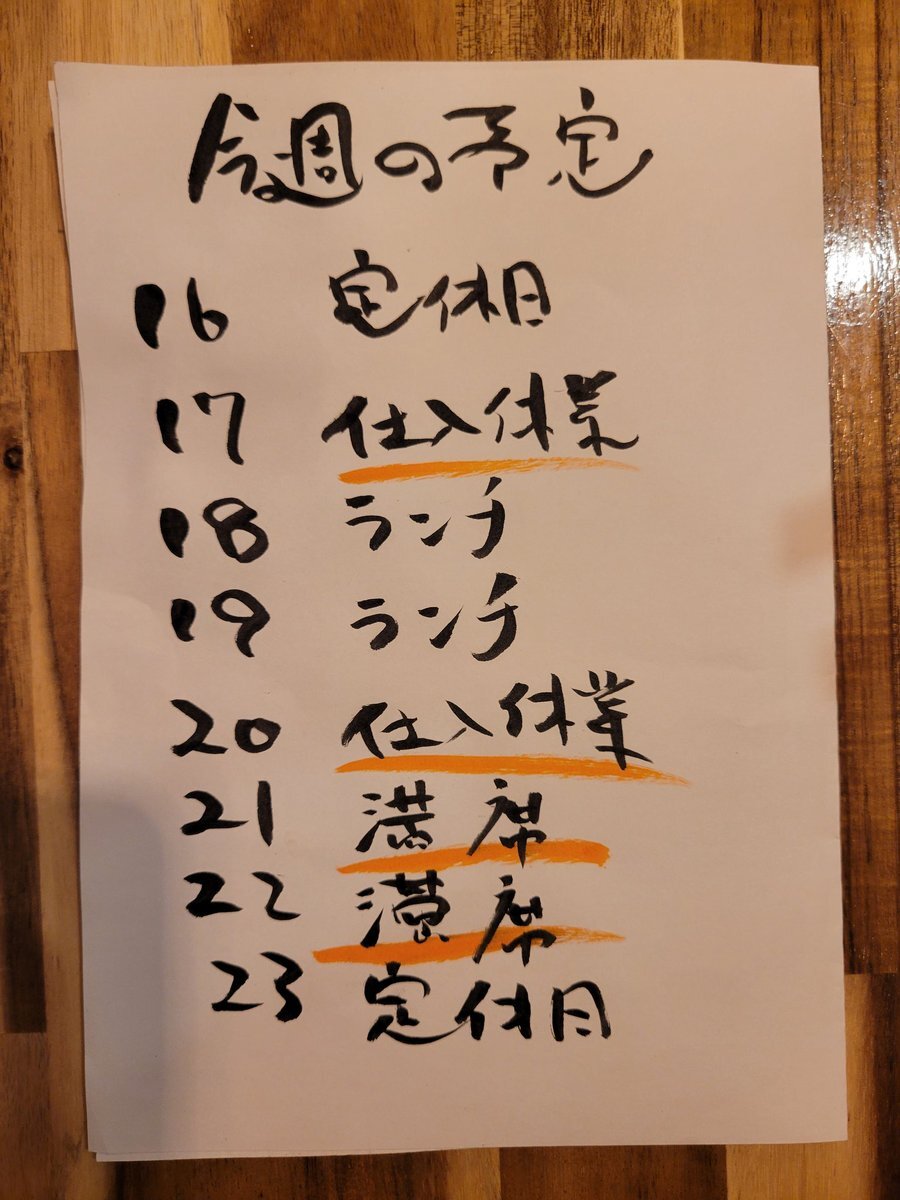 今週の予定
16 定休日
17 仕入休業
18 ランチ
19 ランチ
20 仕入休業
21 満席
22 満席
23 定休日